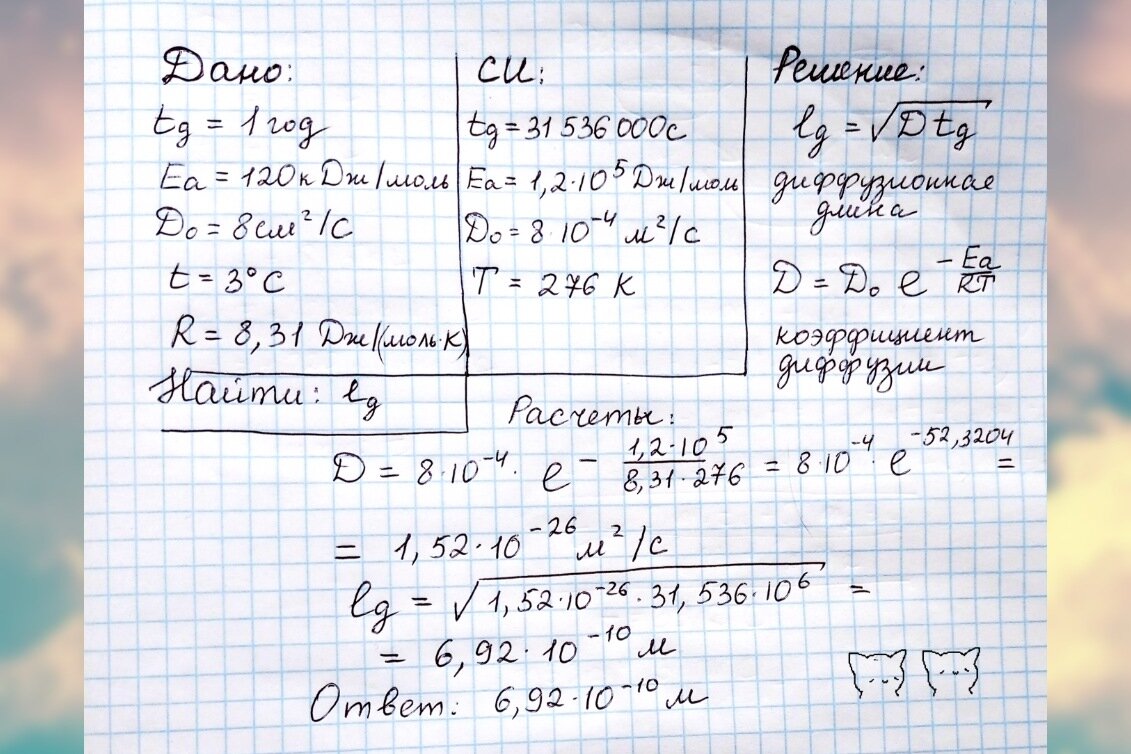 Дано:
tg = 1 год
Ea = 120 кДж/моль
D₀ = 8 см²/с
t = 3°C
R = 8,31 Дж/(моль·К)
Найти: lg
СИ:
tg = 31 536 000 с
Ea = 1,2·10⁵ Дж/моль
D₀ = 8·10⁻⁴ м²/с
T = 276 К
Решение:
lg = √(D tg)
диффузионная
длина
D = D₀ e^(-Ea/RT)
коэффициент
диффузии
Расчеты:
D = 8·10⁻⁴ · e^(- 1,2·10⁵/8,31·276) = 8·10⁻⁴ · e^(-52,3204) =
= 1,52·10⁻²⁶ м²/с
lg = √(1,52·10⁻²⁶·31,536·10⁶) =
= 6,92·10⁻¹⁰ м
Ответ: 6,92·10⁻¹⁰ м